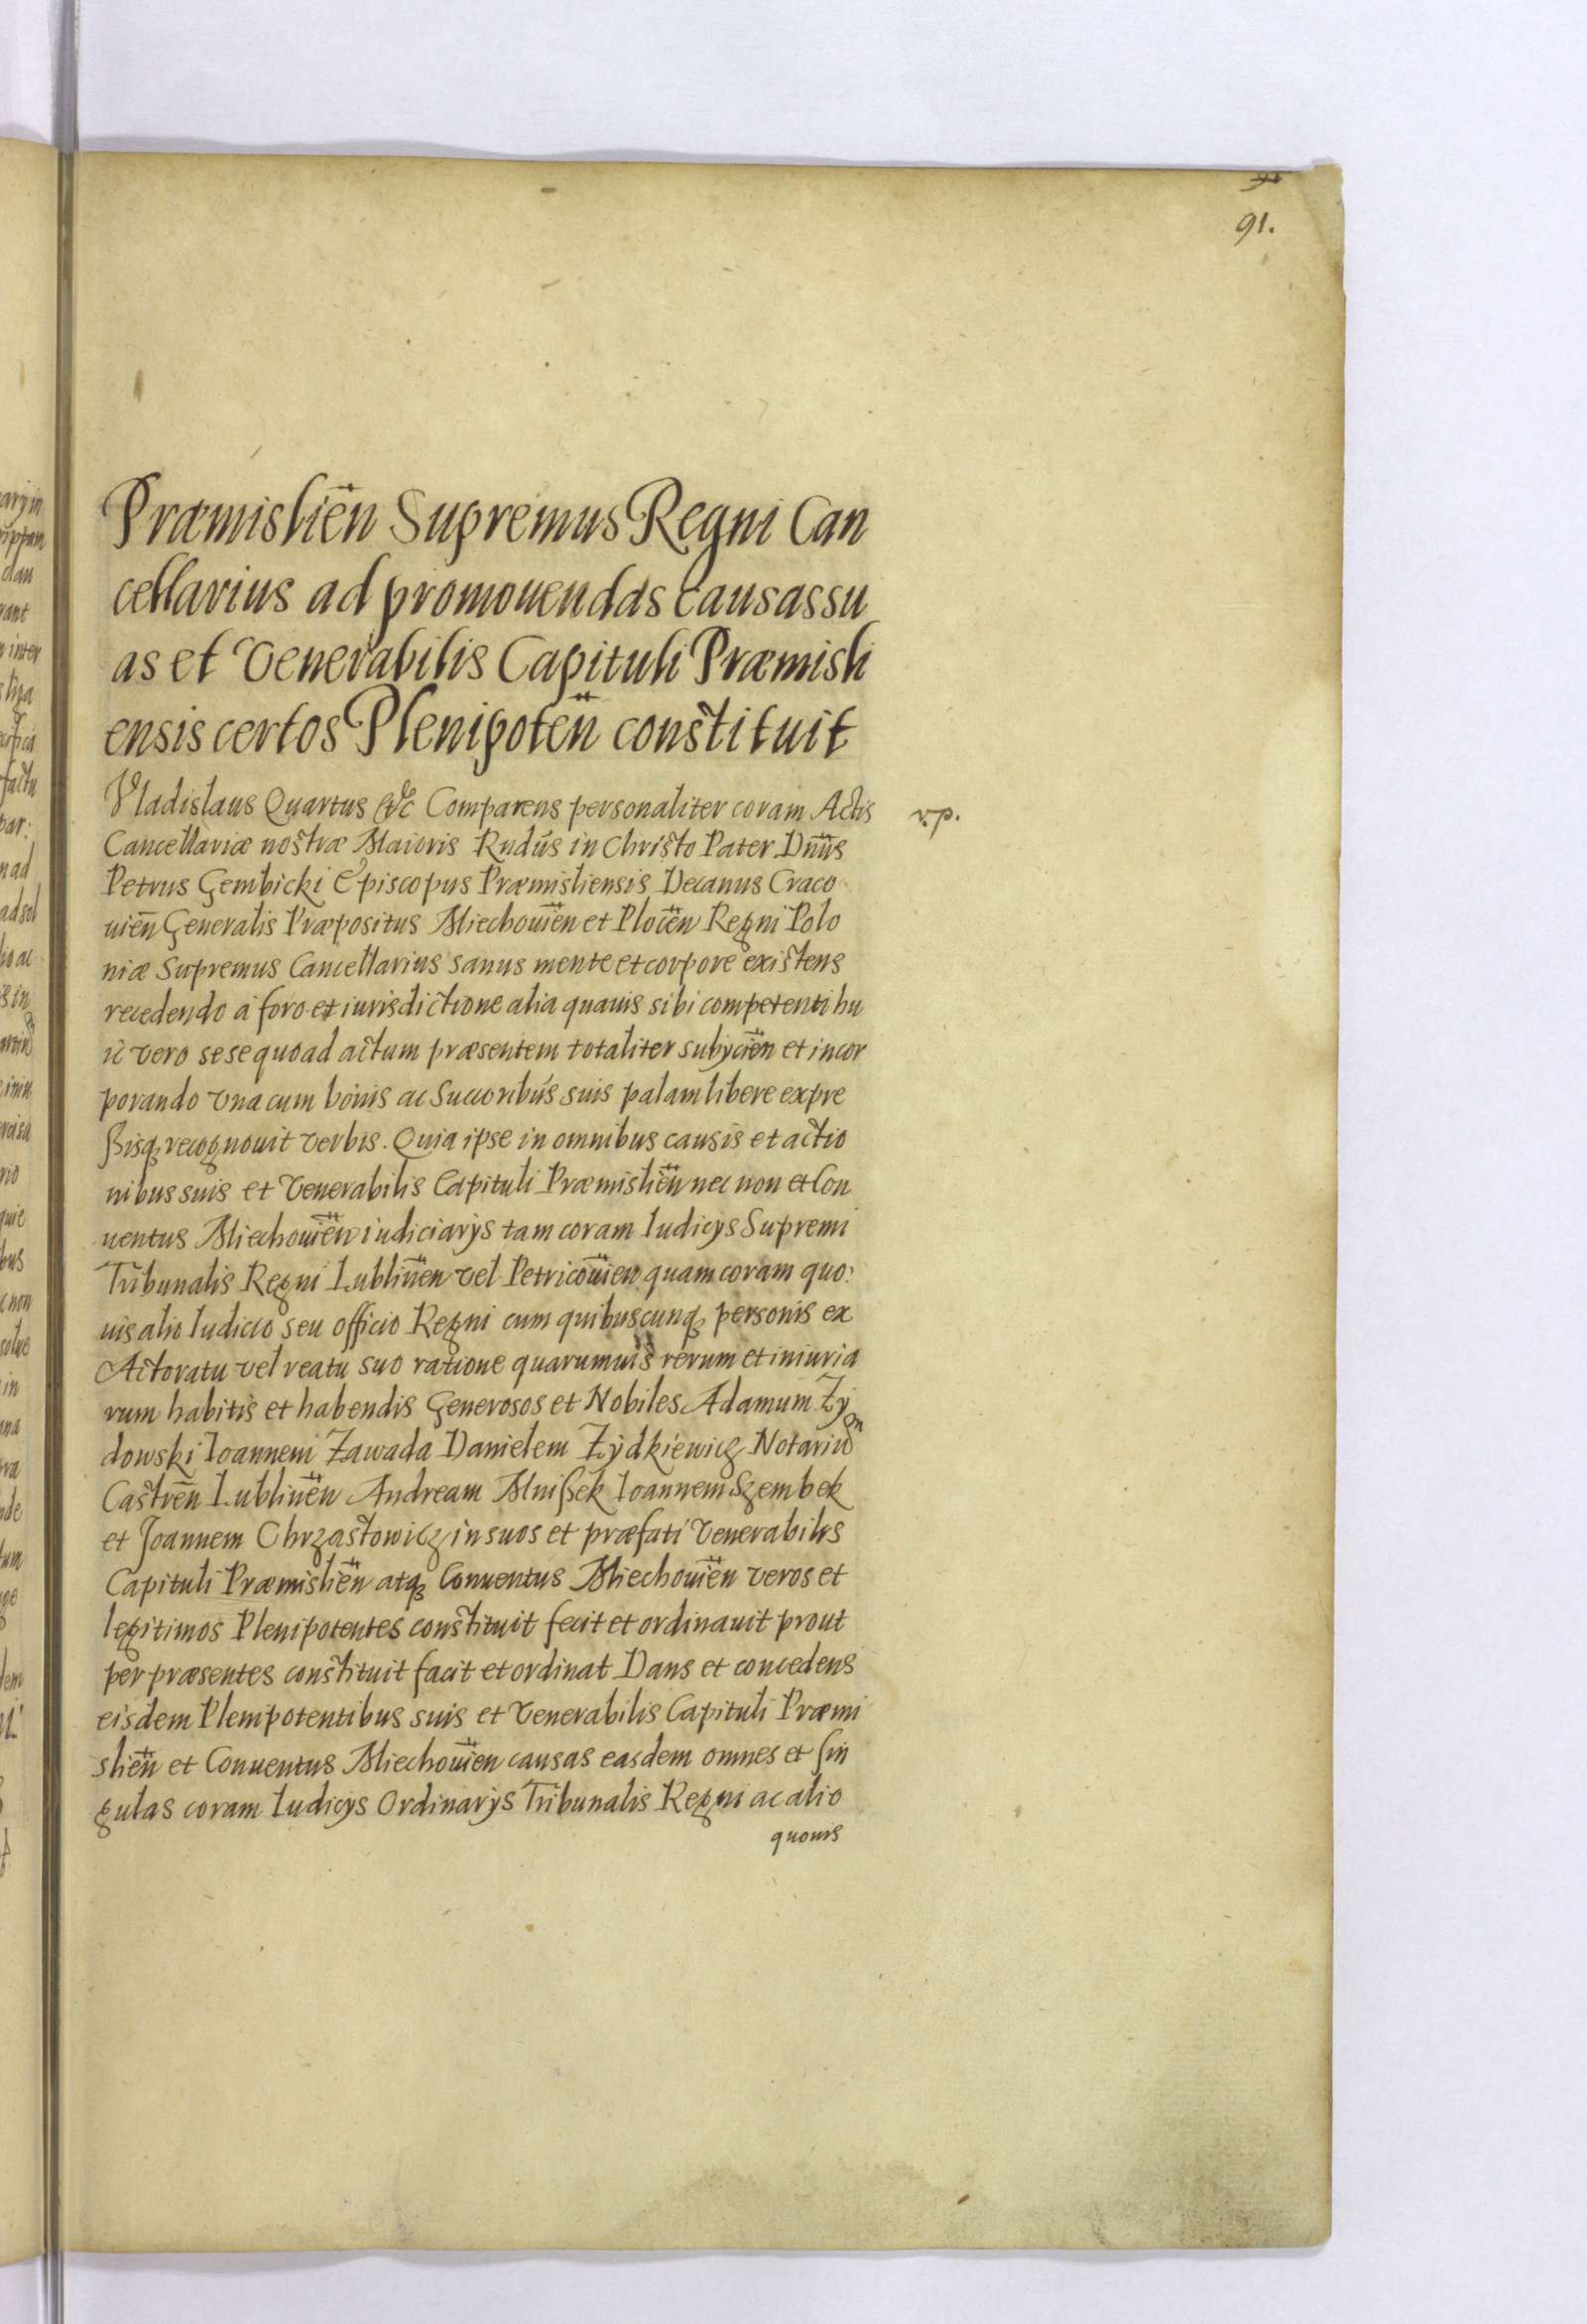 91.
Præmislien̄ Supremus Regni Can
cellarius ad promouendas causas su
as et Venerabilis Capituli Præmisli
ensis certos Plenipoten̄ constituit
Vladislaus Quartus &c Comparens personaliter coram Actis
v.p.
Cancellariæ nostræ Maioris Rndūs in Christo Pater Dn̄us
Petrus Gembicki Episcopus Præmisliensis Decanus Craco
uien̄ Generalis Præpositus Miechouien̄ et Plocen̄ Regni Polo
niæ Supremus Cancellarius sanus mente et corpore existens
recedendo á foro et iurisdictione alia quauis sibi competenti hu
ic vero sese quoad actum præsentem totaliter subijcien̄ et incor
porando vna cum bonis ac Succoribús suis palam libere expre
ßisqꝫ recognouit verbis. Quia ipse in omnibus causis et actio
nibus suis et Venerabilis Capituli Præmislien̄ nec non et Con
uentus Miechouien̄ iudiciarijs tam coram Iudicijs Supremi
Tribunalis Regni Lublinen̄ vel Petricouien̄ quam coram quo:
uis alio Iudicio seu officio Regni cum quibuscunqꝫ personis ex
Actoratu vel reatu suo ratione quarumuis rerum et iniuria
rum habitis et habendis Generosos et Nobiles Adamum Zy
dowski Ioannem Zawada Danielem Zydkiewicz Notarium
Castren̄ Lublinen̄ Andream Mnißek Ioannem Szembek
et Joannem Chrzastowicz in suos et præfati Venerabilis
Capituli Præmislien̄ atqꝫ Conuentus Miechouien̄ veros et
legitimos Plenipotentes constituit fecit et ordinauit prout
per præsentes constituit facit et ordinat Dans et concedens
eisdem Plenipotentibus suis et Venerabilis Capituli Præmi
slien̄ et Conuentus Miechouien̄ causas easdem omnes et sin
gulas coram Iudicijs Ordinarijs Tribunalis Regni ac alio
quouis